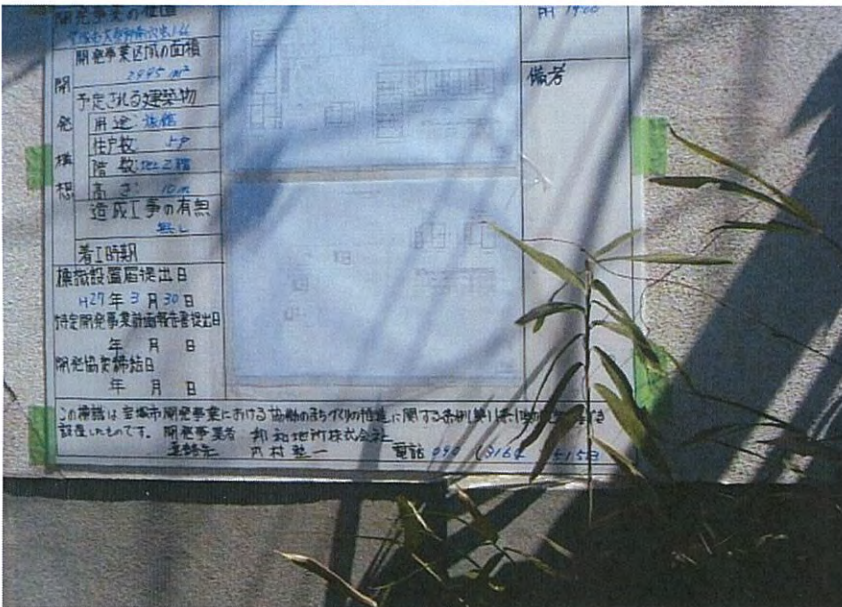 開発事業の位置
開発事業区域の面積
2995 m²
開発構想
予定される建築物
用途: 旅館
住戸数 5戸
階数: 地上2階
高さ: 10m
造成工事の有無
無し
着工時期
標識設置届提出日
H27年3月30日
特定開発事業計画報告書提出日
年 月 日
開発協定締結日
年 月 日
備考
この標識は宝塚市開発事業における協働のまちづくりの推進に関する条例
設置したものです。 開発事業者 邦和地所株式会社
連絡先 内村 一 電話 090